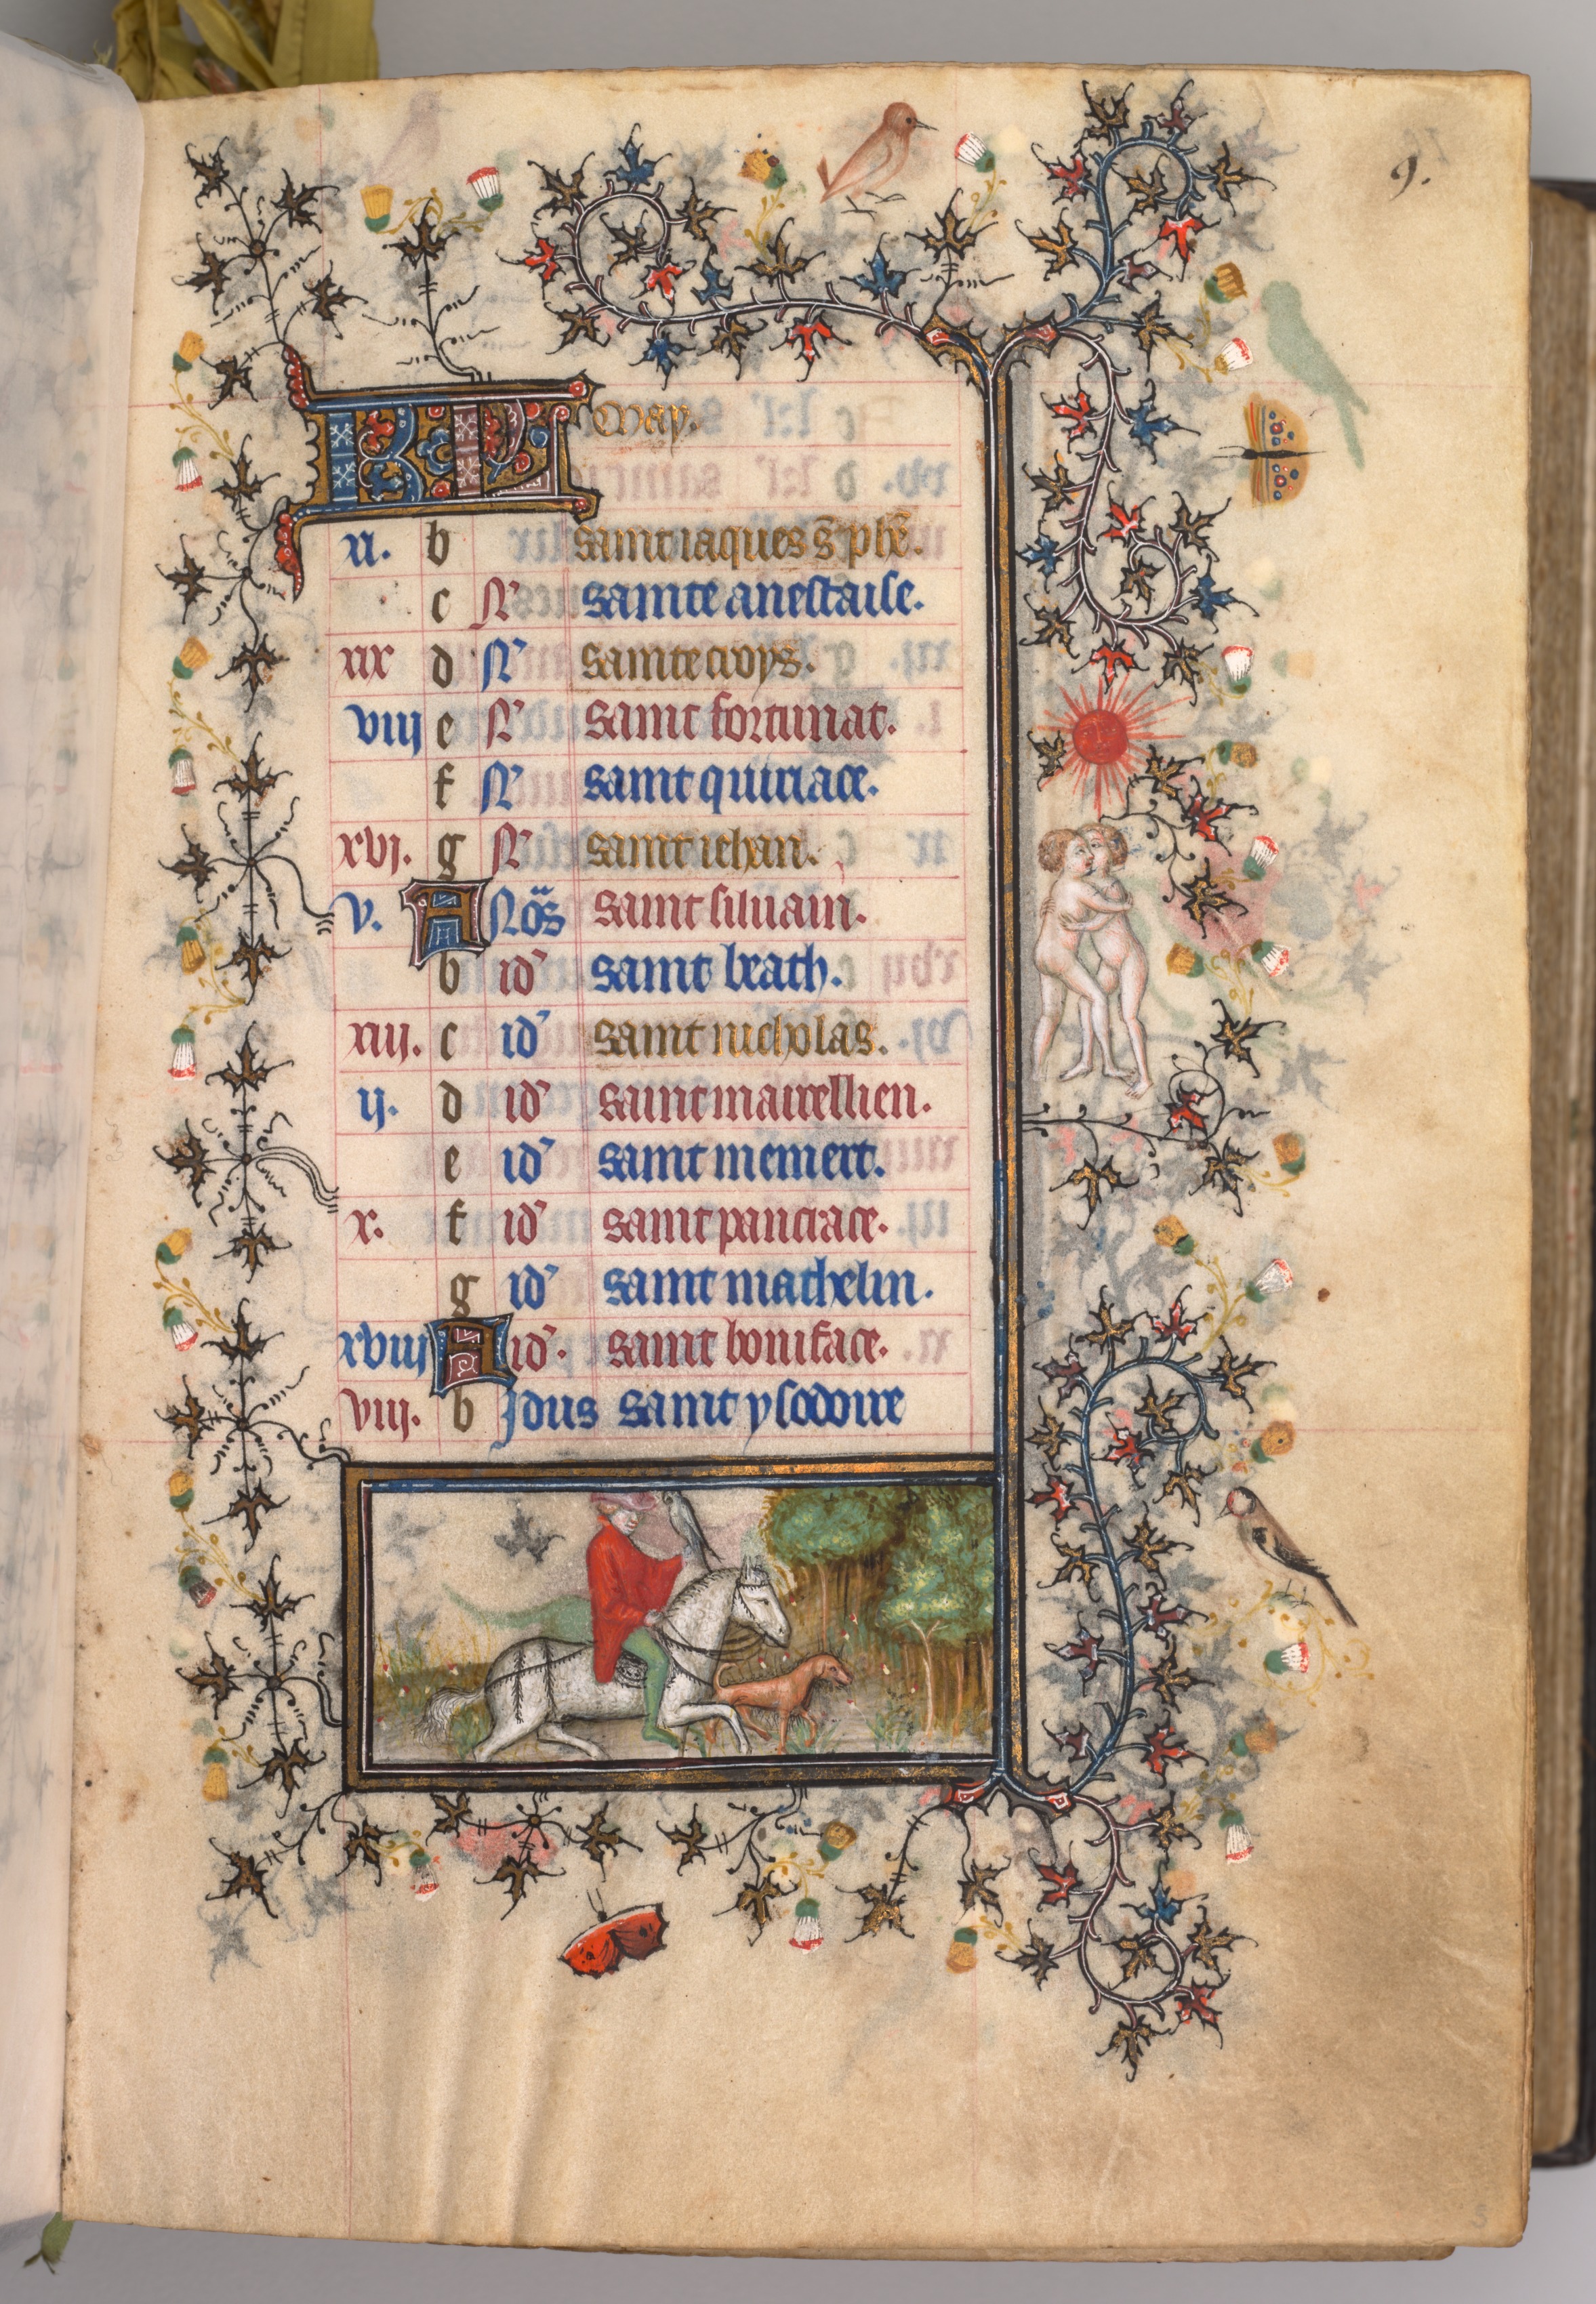 9.
KL May.
xi. b saint iaques s̄ ph̄e.
c N' sainte anestaise.
xix d N' sainte croys.
viii e N' saint fortunat.
f N' saint quiriace.
xvi. g N' saint iehan.
v. A Nōs saint siluain.
b id' saint beath.
xiii. c id' saint nicholas.
ij. d id' saint mamellien.
e id' saint memert.
x. f id' saint panciace.
g id' saint mathelin.
xviii A id. saint boniface.
vii. b Idus saint ysodoire
5